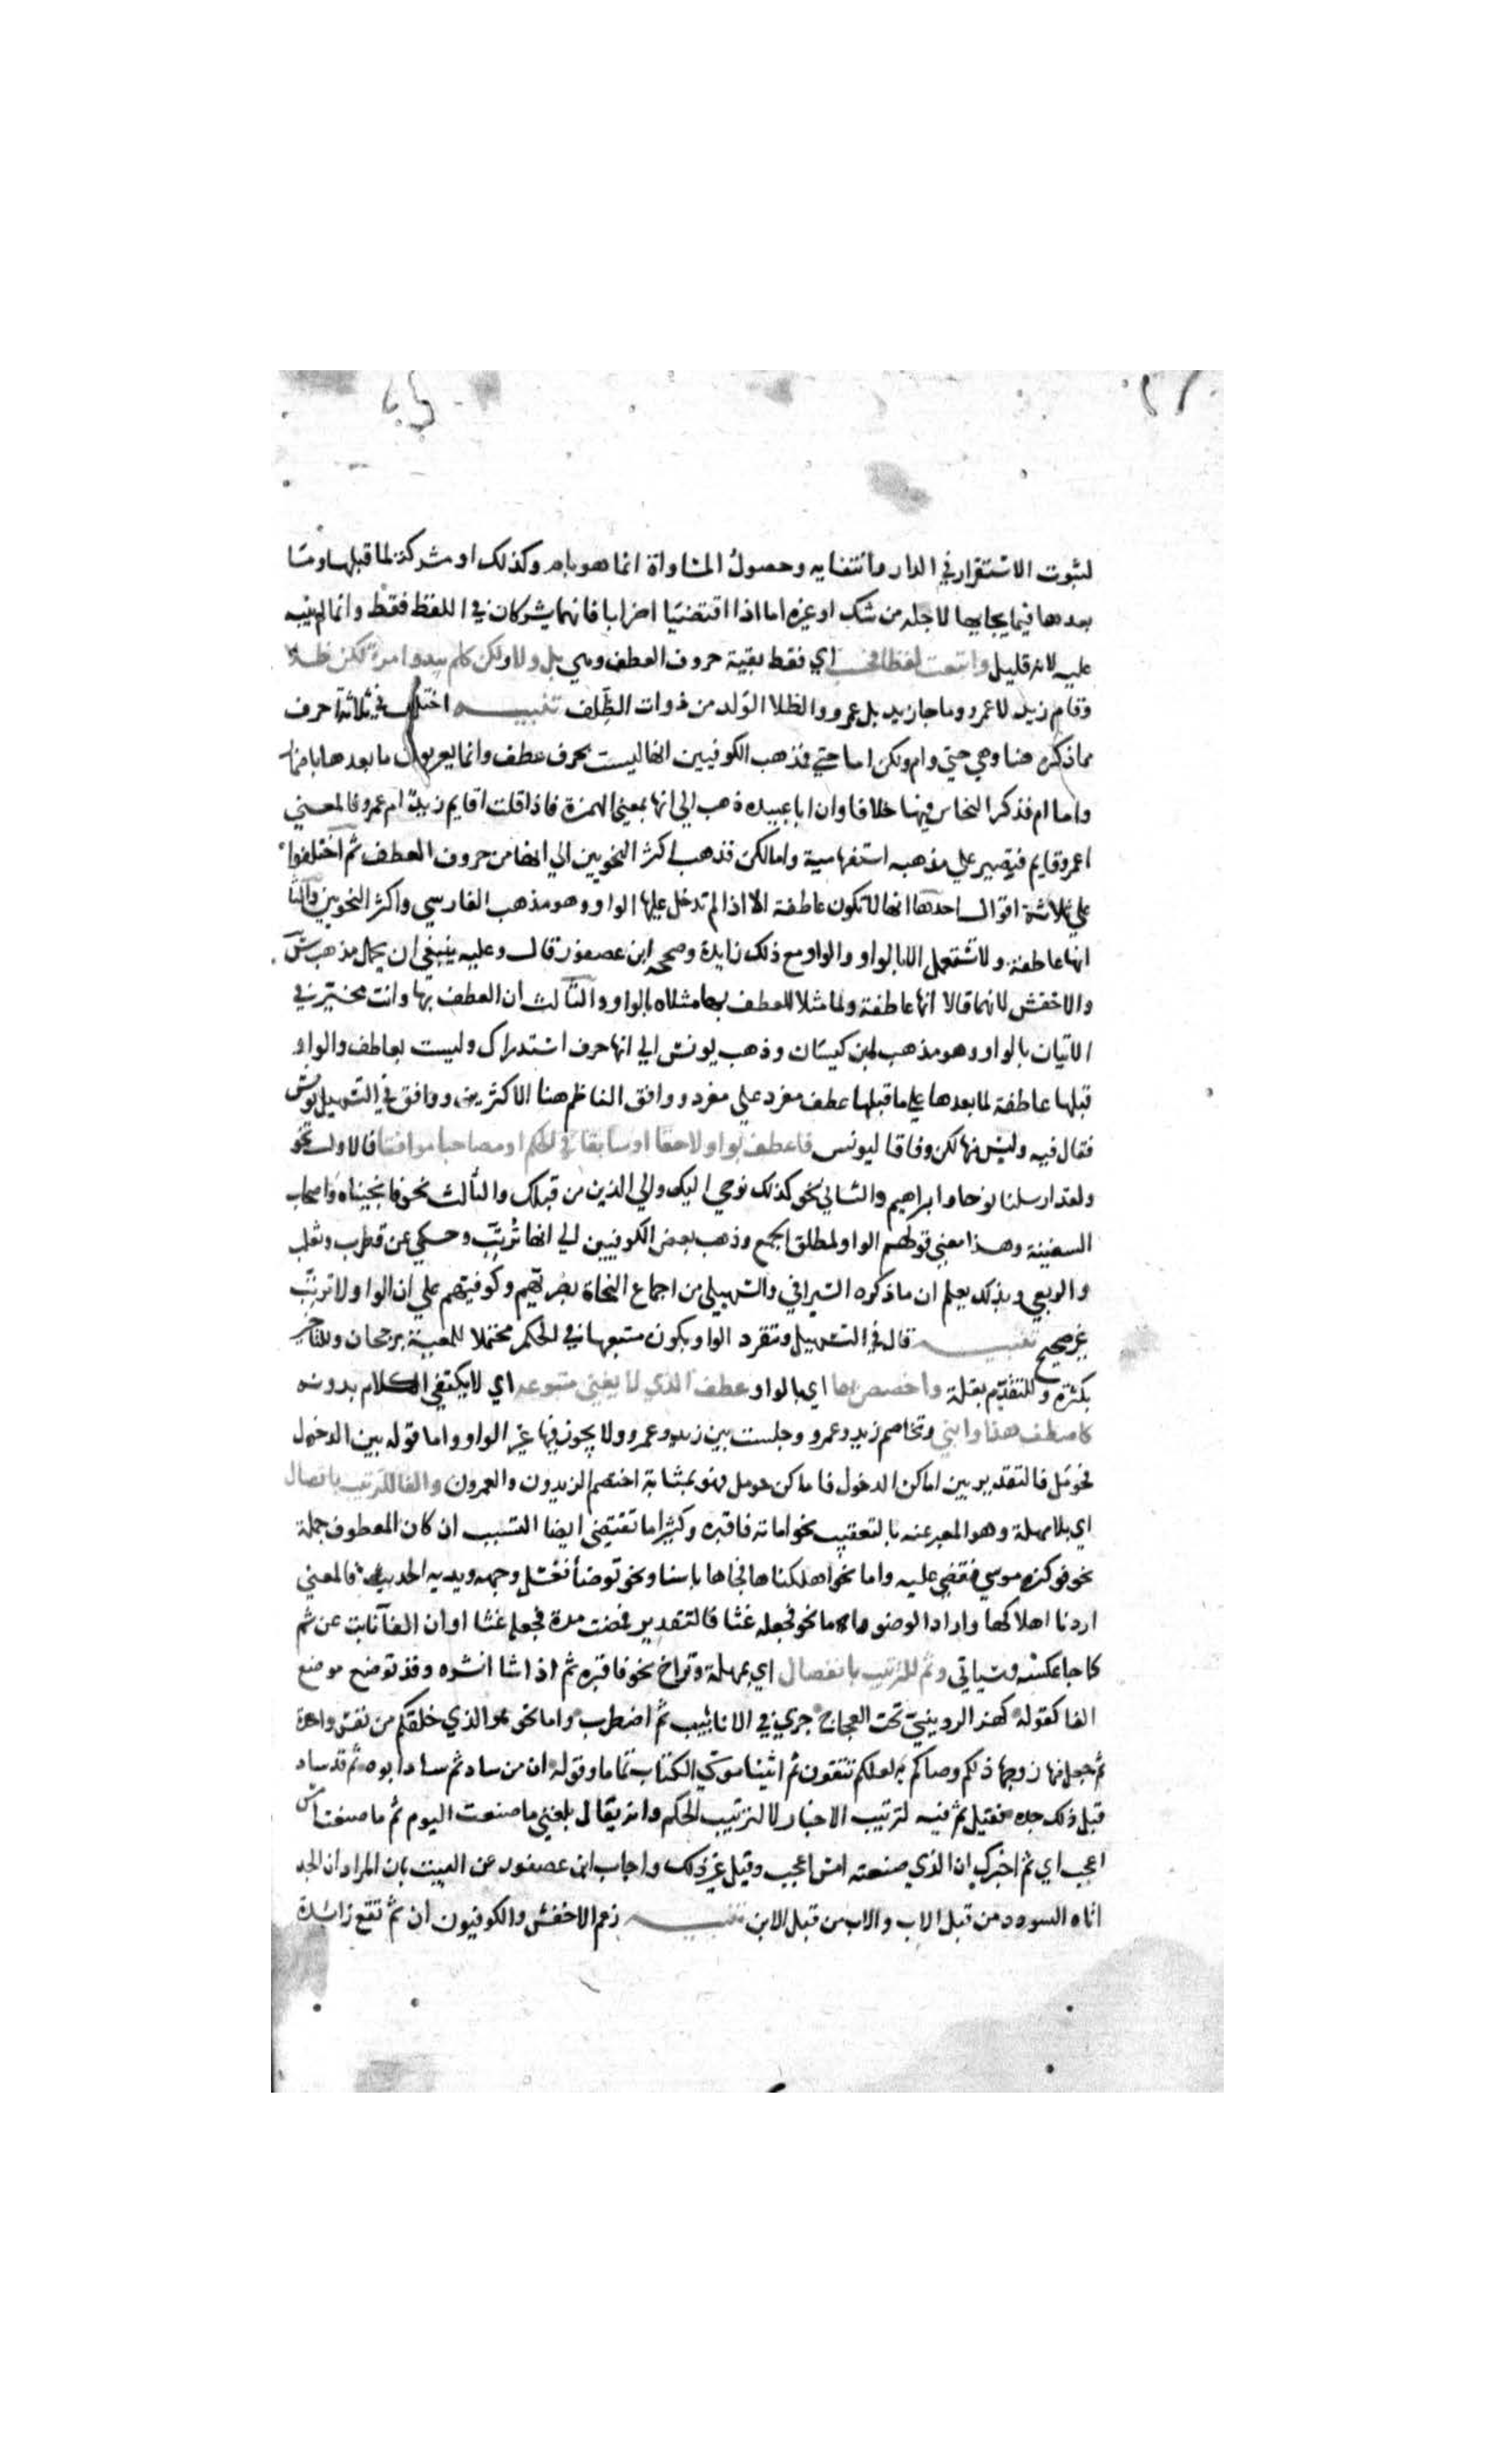 لثبوت الاستقرار في الدار وانتفايه وحصول المساواة انما هو بام وكذلك او مشركة لما قبلها وما
بعدها فيما يجابها لاجله من شك او غيره اما اذا اقتضتا اضرابا فانهما يشركان في اللفظ فقط وانما لم ينبه
عليه لانه قليل واتبعت لفظا فحسب اي فقط بقية حروف العطف وهي بل ولا ولكن كلم يبدوا مرؤ لكن طلا
وقام زيد لا عمرو وما جا زيد بل عمرو والطلا الولد من ذوات الظلف تنبيه اختلف في ثلاثة احرف
مما ذكره هنا وهي حتي وام ولكن اما حتي فذهب الكوفيين انها ليست بحرف عطف وانما يعربون ما بعدها باضمار
واما ام فذكر النحاس فيها خلافا وان ابا عبيده ذهب الي انها بمعني الهمزة فاذا قلت اقايم زيد ام عمرو فالمعني
اعمرو قايم فتصير علي مذهبه استفهامية واما لكن فذهب اكثر النحويين الي انها من حروف العطف ثم اختلفوا
علي ثلاثة اقوال احدها انها لا تكون عاطفة الا اذا لم تدخل عليها الواو وهو مذهب الفارسي واكثر النحويين والثا
انها عاطفة ولا تستعمل الا بالواو والواو مع ذلك زايدة وصححه ابن عصفور قال وعليه ينبغي ان يحمل مذهب س
والاخفش لانهما قالا انها عاطفة ولما مثلا للعطف بها مثلاه بالواو والثالث ان العطف بها وانت مخير في
الاتيان بالواو وهو مذهب ابن كيسان وذهب يونس الي انها حرف استدراك وليست بعاطف والواو
قبلها عاطفة لما بعدها علي ما قبلها عطف مفرد علي مفرد ووافق الناظم هنا الاكثرين ووافق في التسهيل يونس
فقال فيه وليس منها لكن وفاقا ليونس فاعطف بواو لاحقا او سابقا في الحكم او مصاحبا موافقا فالاول نحو
ولقد ارسلنا نوحا وابراهيم والثاني نحو كذلك نوحي اليك والي الذين من قبلك والثالث نحو فانجيناه واصحاب
السفينة وهذا معني قولهم الواو لمطلق الجمع وذهب بعض الكوفيين الي انها ترتب وحكي عن قطرب وثعلب
والربعي وبذلك يعلم ان ما ذكره السيرافي والسهيلي من اجماع النحاة بصريهم وكوفيهم علي ان الواو لا ترتب
غير صحيح تنبيه قال في التسهيل وتنفرد الواو بكون متبعها في الحكم محتملا للمعية برجحان وللتاخر
بكثرة وللتقدم بقلة واخصص بها اي بالواو عطف الذي لا يغني متبوعه اي لا يكتفي الكلام بدونه
كاصطف هذا وابني وتخاصم زيد وعمرو وجلست بين زيد وعمرو ولا يجوز فيها غير الواو واما قوله بين الدخول
فحومل فالتقدير بين اماكن الدخول فاماكن حومل فهو بمثابة اختصم الزيدون والعمرون والفا للترتيب باتصال
اي بلا مهلة وهو المعبر عنه بالتعقيب نحو اماته فاقبره وكثيرا ما تقتضي ايضا التسبب ان كان المعطوف جملة
نحو فوكزه موسي فقضي عليه واما نحو اهلكناها فجاها باسنا ونحو توضأ فغسل وجهه ويديه الحديث فالمعني
اردنا اهلاكها واراد الوضو واما نحو فجعله غثا فالتقدير فمضت مدة فجعله غثا او ان الفا نابت عن ثم
كما جا عكسه وسياتي وثم للترتيب بانفصال اي بمهلة وتراخ نحو فاقبره ثم اذا شا انشره وقد توضع موضع
الفا كقوله كهز الرديني تحت العجاج جري في الانابيب ثم اضطرب واما نحو هو الذي خلقكم من نفس واحدة
ثم جعل منها زوجها ذلكم وصاكم به لعلكم تتقون ثم اتينا موسي الكتاب تماما وقوله ان من ساد ثم ساد ابوه ثم قد ساد
قبل ذلك جده فقيل ثم فيه لترتيب الاخبار لا لترتيب الحكم وانه يقال بلغني ما صنعت اليوم ثم ما صنعت امس
اعجب اي ثم اخبرك ان الذي صنعته امس اعجب وقيل غير ذلك واجاب ابن عصفور عن البيت بان المراد ان الجد
اتاه السودد من قبل الاب والاب من قبل الابن تنبيه زعم الاخفش والكوفيون ان ثم تقع زائدة